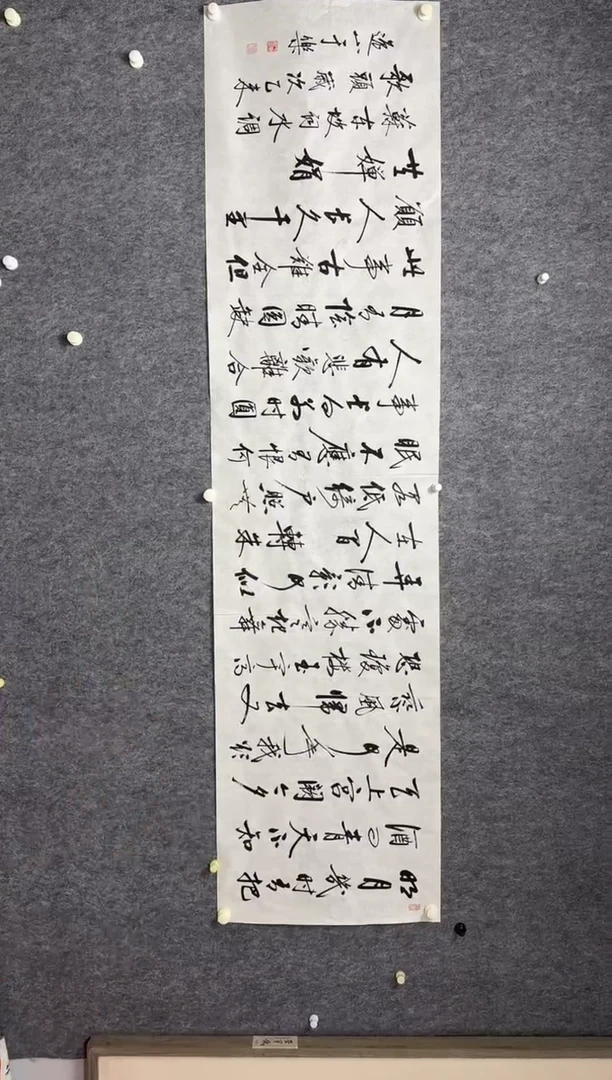 明月幾时有把
酒问青天不知
天上宫阙今夕
是何年我欲
乘風歸去又
恐瓊樓玉宇高
處不勝寒起舞
弄清影何似
在人间轉朱
阁低綺户照无
眠不應有恨何
事长向别时圓
人有悲歡離合
月有阴晴圓缺
此事古難全但
願人长久千里
共嬋娟
蘇東坡词水调
歌頭歲次乙未
于樂